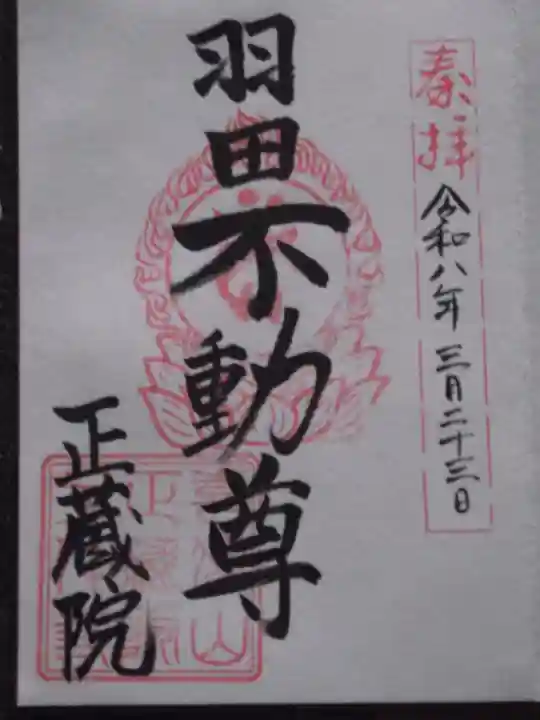 奉拝
令和八年 三月二十三日
羽田不動尊
正蔵院